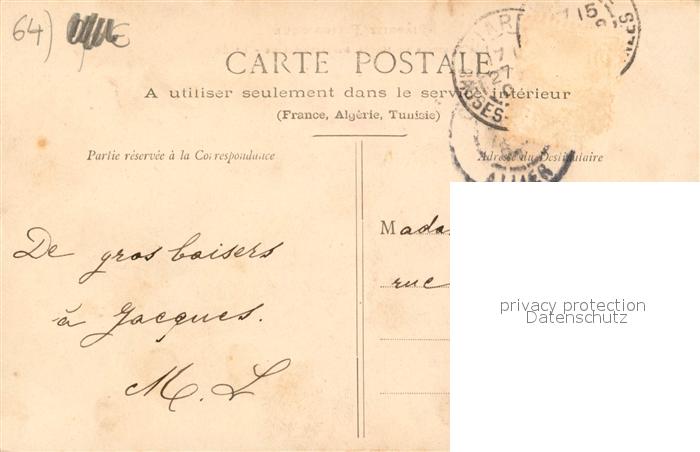 64)
CARTE POSTALE
A utiliser seulement dans le service intérieur
(France, Algérie, Tunisie)
Partie réservée à la Correspondance
Adresse du Destinataire
De gros baisers
à Jacques.
M. L
Mada
rue
privacy protection
Datenschutz